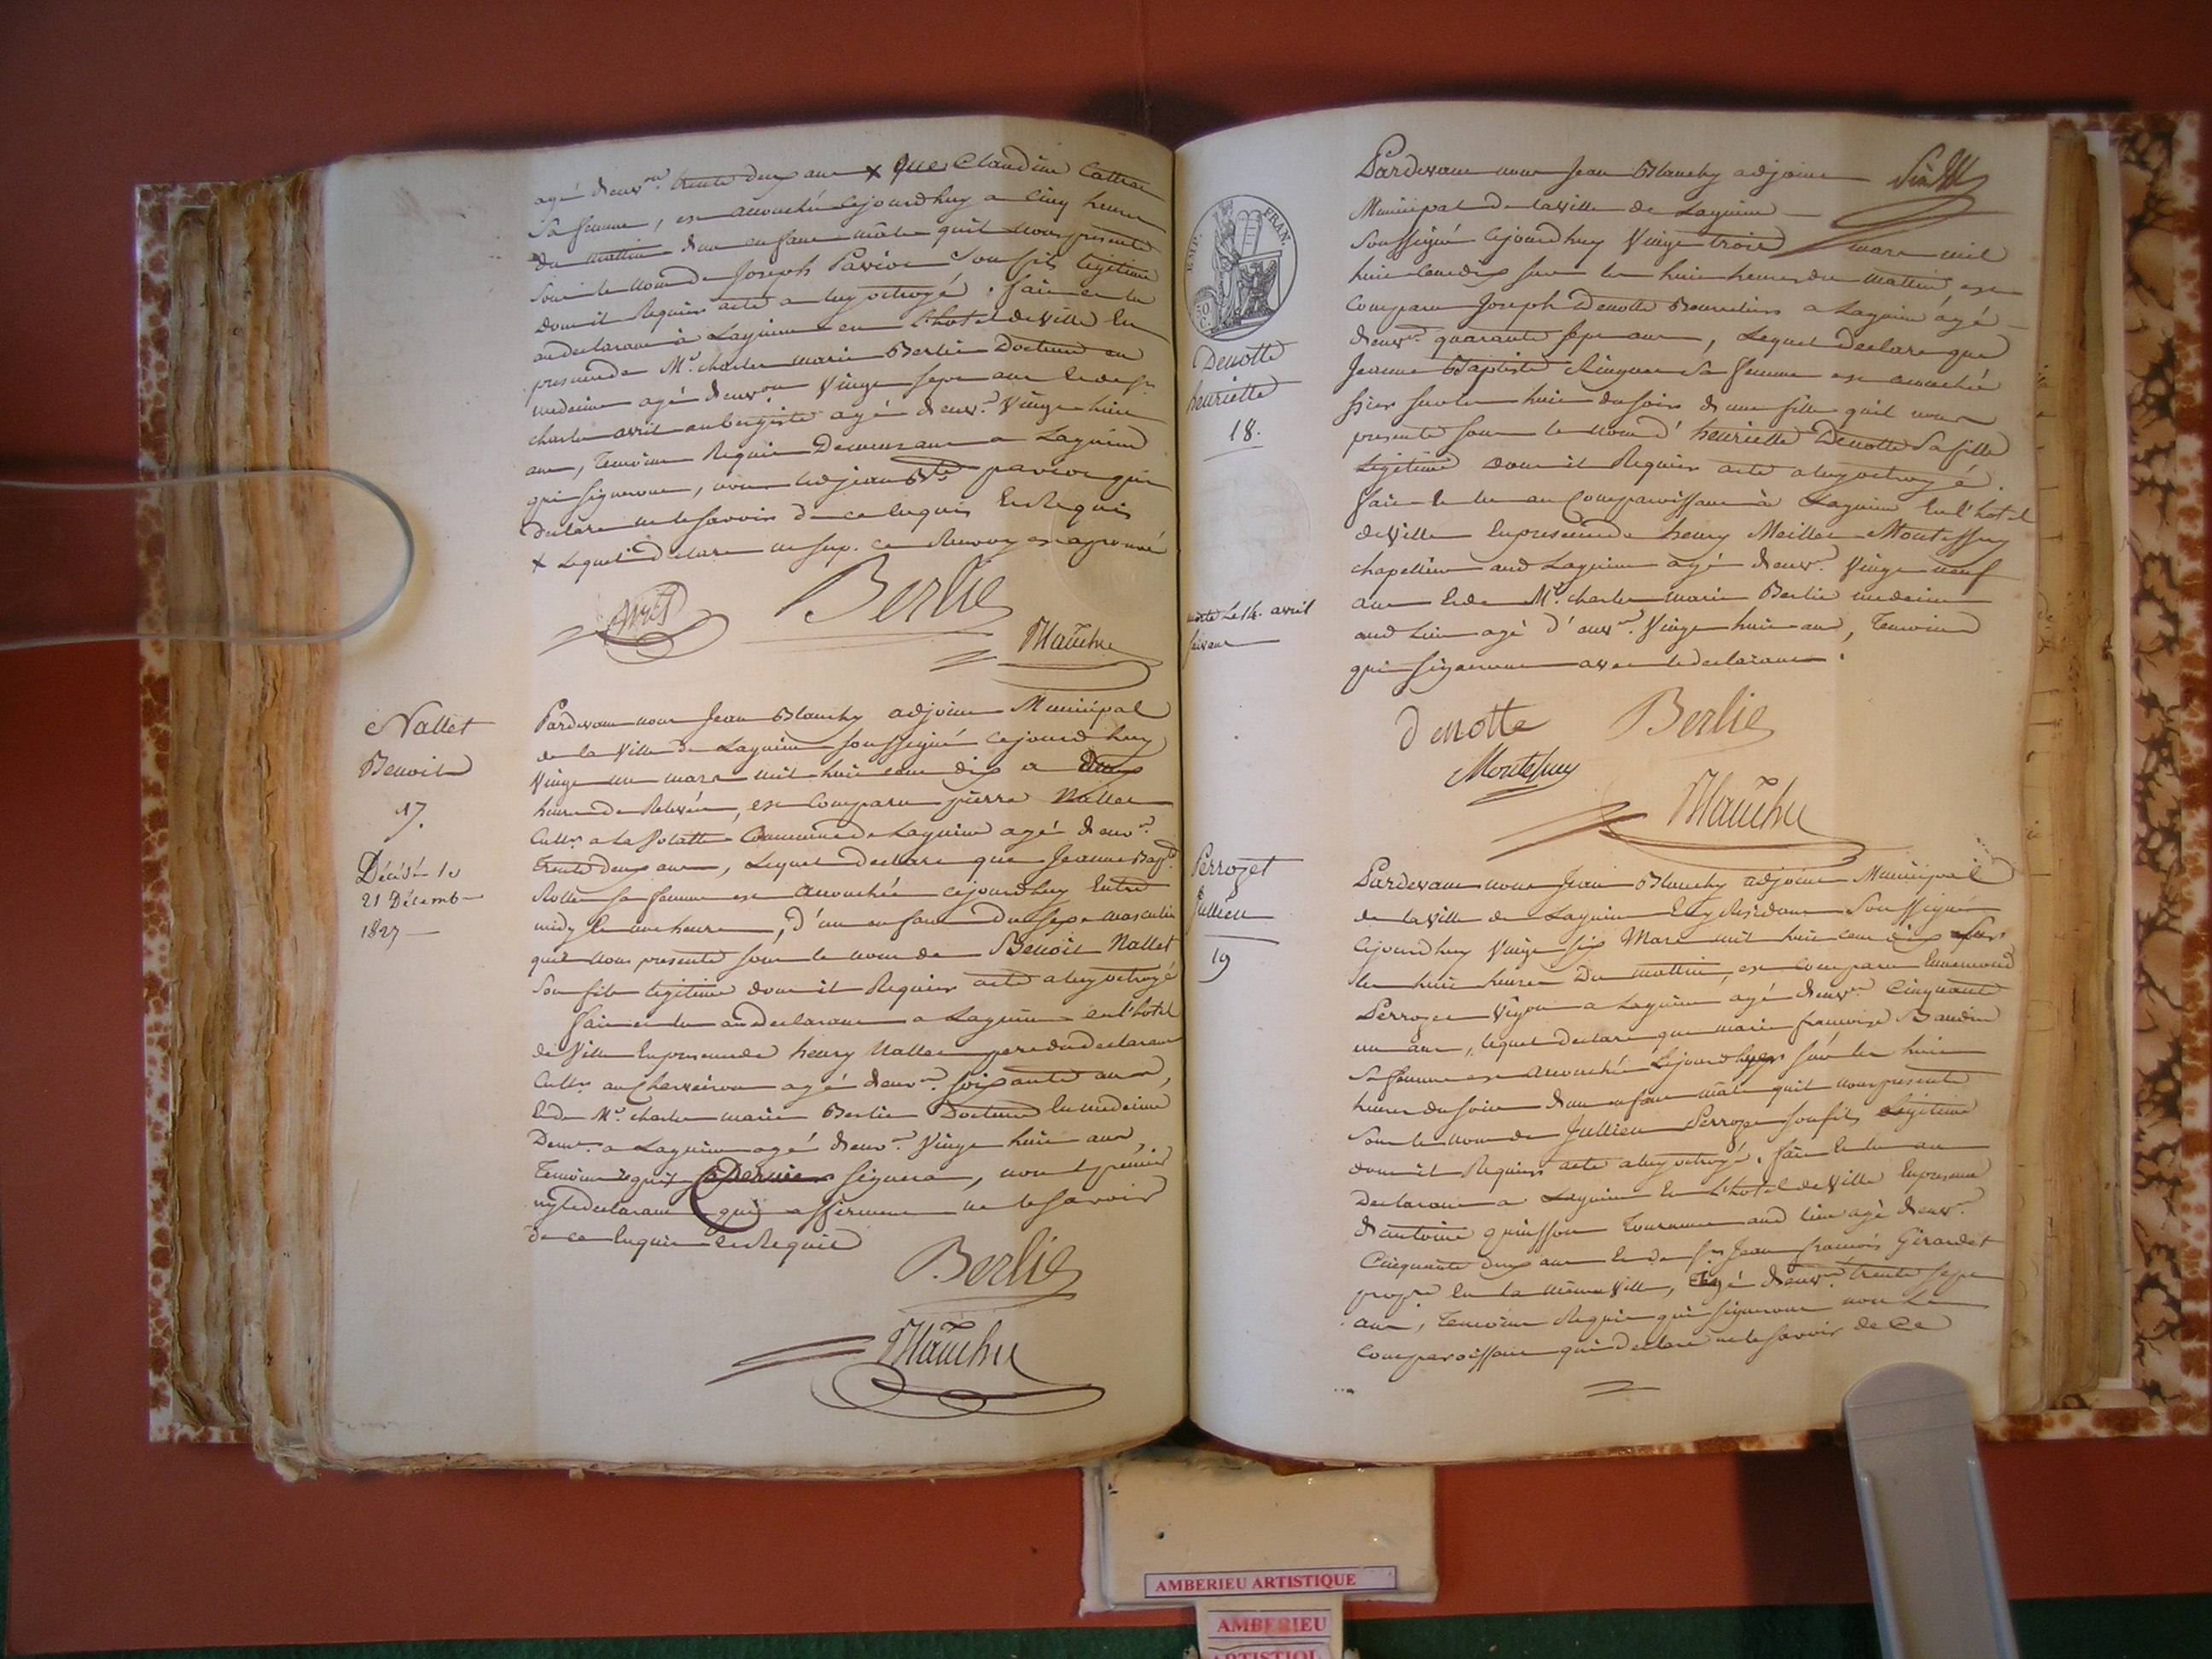 agé d'env.on trente deux ans x que Claudine
Sa femme, est accouchée cejourd'huy a cinq heures
du mattin d'un enfant mâle qu'il nous presente
sous le nom de Joseph Pavion son fils legitime
dont il Requiers acte a luy octroyé. fait et lu
au declarant à Lagnieu en l'hotel de Ville En
presence de Mr. charles marie Berlie Docteur en
medecine agé d'env.on Vingt sept ans et de Sr.
charles avril aubergiste agé d'env.on Vingt huit
ans, temoins Requis Demeurants a Lagnieu
qui signeront, non led. jean Bte. pavion qui
declare ne le savoir de ce enquis et Requis
x Lequel declare ce Renvoy est aprouvé
Avril
Berlie
Blanchy
Nallet
Benoit
17.
Décédé le
21 Décemb
1827
Pardevant nous Jean Blanchy adjoint Municipal
de la Ville de Lagnieu soussigné cejourd'huy
Vingt un mars mil huit cent dix a deux
heures de Relevée, est Comparu pierre Nallet
Cultr. a Commune de Lagnieu agé d'env.on
trente deux ans, Lequel declare que Jeanne Bapt.
sa femme est accouchée cejourd'huy Entre
midy et une heure, d'un enfant du sexe masculin
qu'il nous presente sous le nom de Benoit Nallet
Son fils legitime dont il Requiers acte a luy octroyé
fait et lu au declarant a Lagnieu en l'hotel
de Ville En presence de henry Nallet pere du declarant
Cultr. au agé d'env.on soixante ans,
Et de Mr. charles marie Berlie Docteur En medecine
Demt. a Lagnieu agé d'env.on Vingt huit ans,
Temoins Requis Ce Dernier signera, non le premier
ny le declarant qui affirment ne le savoir
de ce Enquis et Requis
Berlie
Blanchy
EMP. FRAN.
50 C.
Denotte
henriette
18.
morte Le 14. avril
suivant
Pardevant nous Jean Blanchy adjoint
Municipal de la Ville de Lagnieu
Soussigné cejourd'huy Vingt trois mars mil
huit cent dix sur les huit heures du mattin, est
Comparu Joseph Denotte a Lagnieu âgé
d'env.on quarante sept ans, Lequel declare que
Jeanne Baptiste sa femme est accouchée
hier sur les huit du soir d'une fille qu'il nous
presente sous le nom d'henriette Denotte Sa fille
Legitime dont il Requiers acte a luy octroyé.
fait et lu au Comparoissant à Lagnieu En l'hotel
de Ville En presence de henry Montessuy
chapellier aud Lagnieu âgé d'env.on Vingt neuf
ans Et de Mr. charles marie Berlie medecin
aud Lieu agé d'env.on Vingt huit ans, Temoins
qui signeront avec le declarant.
denotte
Berlie
Montessuy
Blanchy
Perrozet
Jullien
19
Pardevant nous Jean Blanchy adjoint Municipal
de la Ville de Lagnieu Soussigné
Cejourd'huy Vingt six Mars mil huit cent dix sur
les huit heures Du mattin, est Comparu Ennemond
Perrozet a Lagnieu agé d'env.on Cinquante
un ans, lequel declare que marie françoise Baudin
Sa femme est accouchée sur les huit
heures du soir d'un enfant mâle qu'il nous presente
Sous le nom de Jullien Perrozet son fils Legitime
dont il Requiers acte a luy octroyé. fait Et lu au
Declarant a Lagnieu En L'hotel de Ville En presence
d'antoine aud lieu agé d'env.on
Cinquante deux ans Et de Sr. Jean françois Girardet
propre. En la même Ville, agé d'env.on trente sept
ans, Temoins Requis qui signeront non Le
Comparoissant qui declare ne le savoir de Ce
AMBERIEU ARTISTIQUE
AMBERIEU